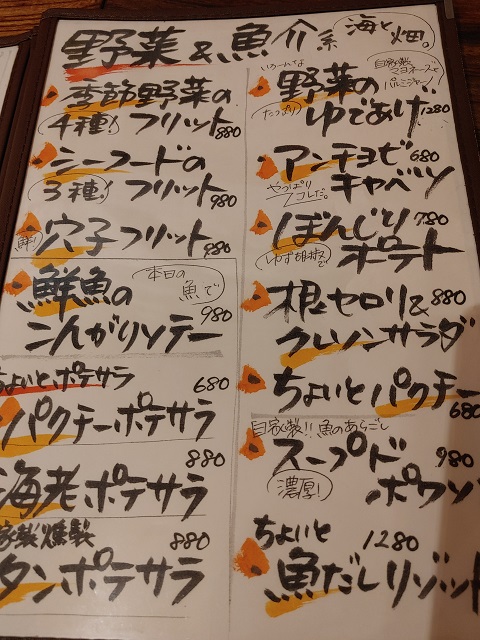 野菜&魚介系 海と畑。
季節野菜の
4種! フリット 880
シーフードの
3種! フリット 980
穴子フリット 980
鮮魚の 本日の魚で
こんがりソテー 980
ちょいと、ポテサラ
パクチーポテサラ 680
海老ポテサラ 880
自家製燻製
タンポテサラ 880
いろーんな 自家製マヨネーズでパルミジャーノ
野菜の
たっぷり ゆであげ 1280
アンチョビ 680
やっぱりコレだ。 キャベツ
ぼんじり 780
ゆず胡椒で ポテト
根セロリ& 880
クレソンサラダ
ちょいとパクチー 680
自家製!! 魚のあらごし
スープド 980
濃厚! ポワソ
ちょいと 1280
魚だしリゾット